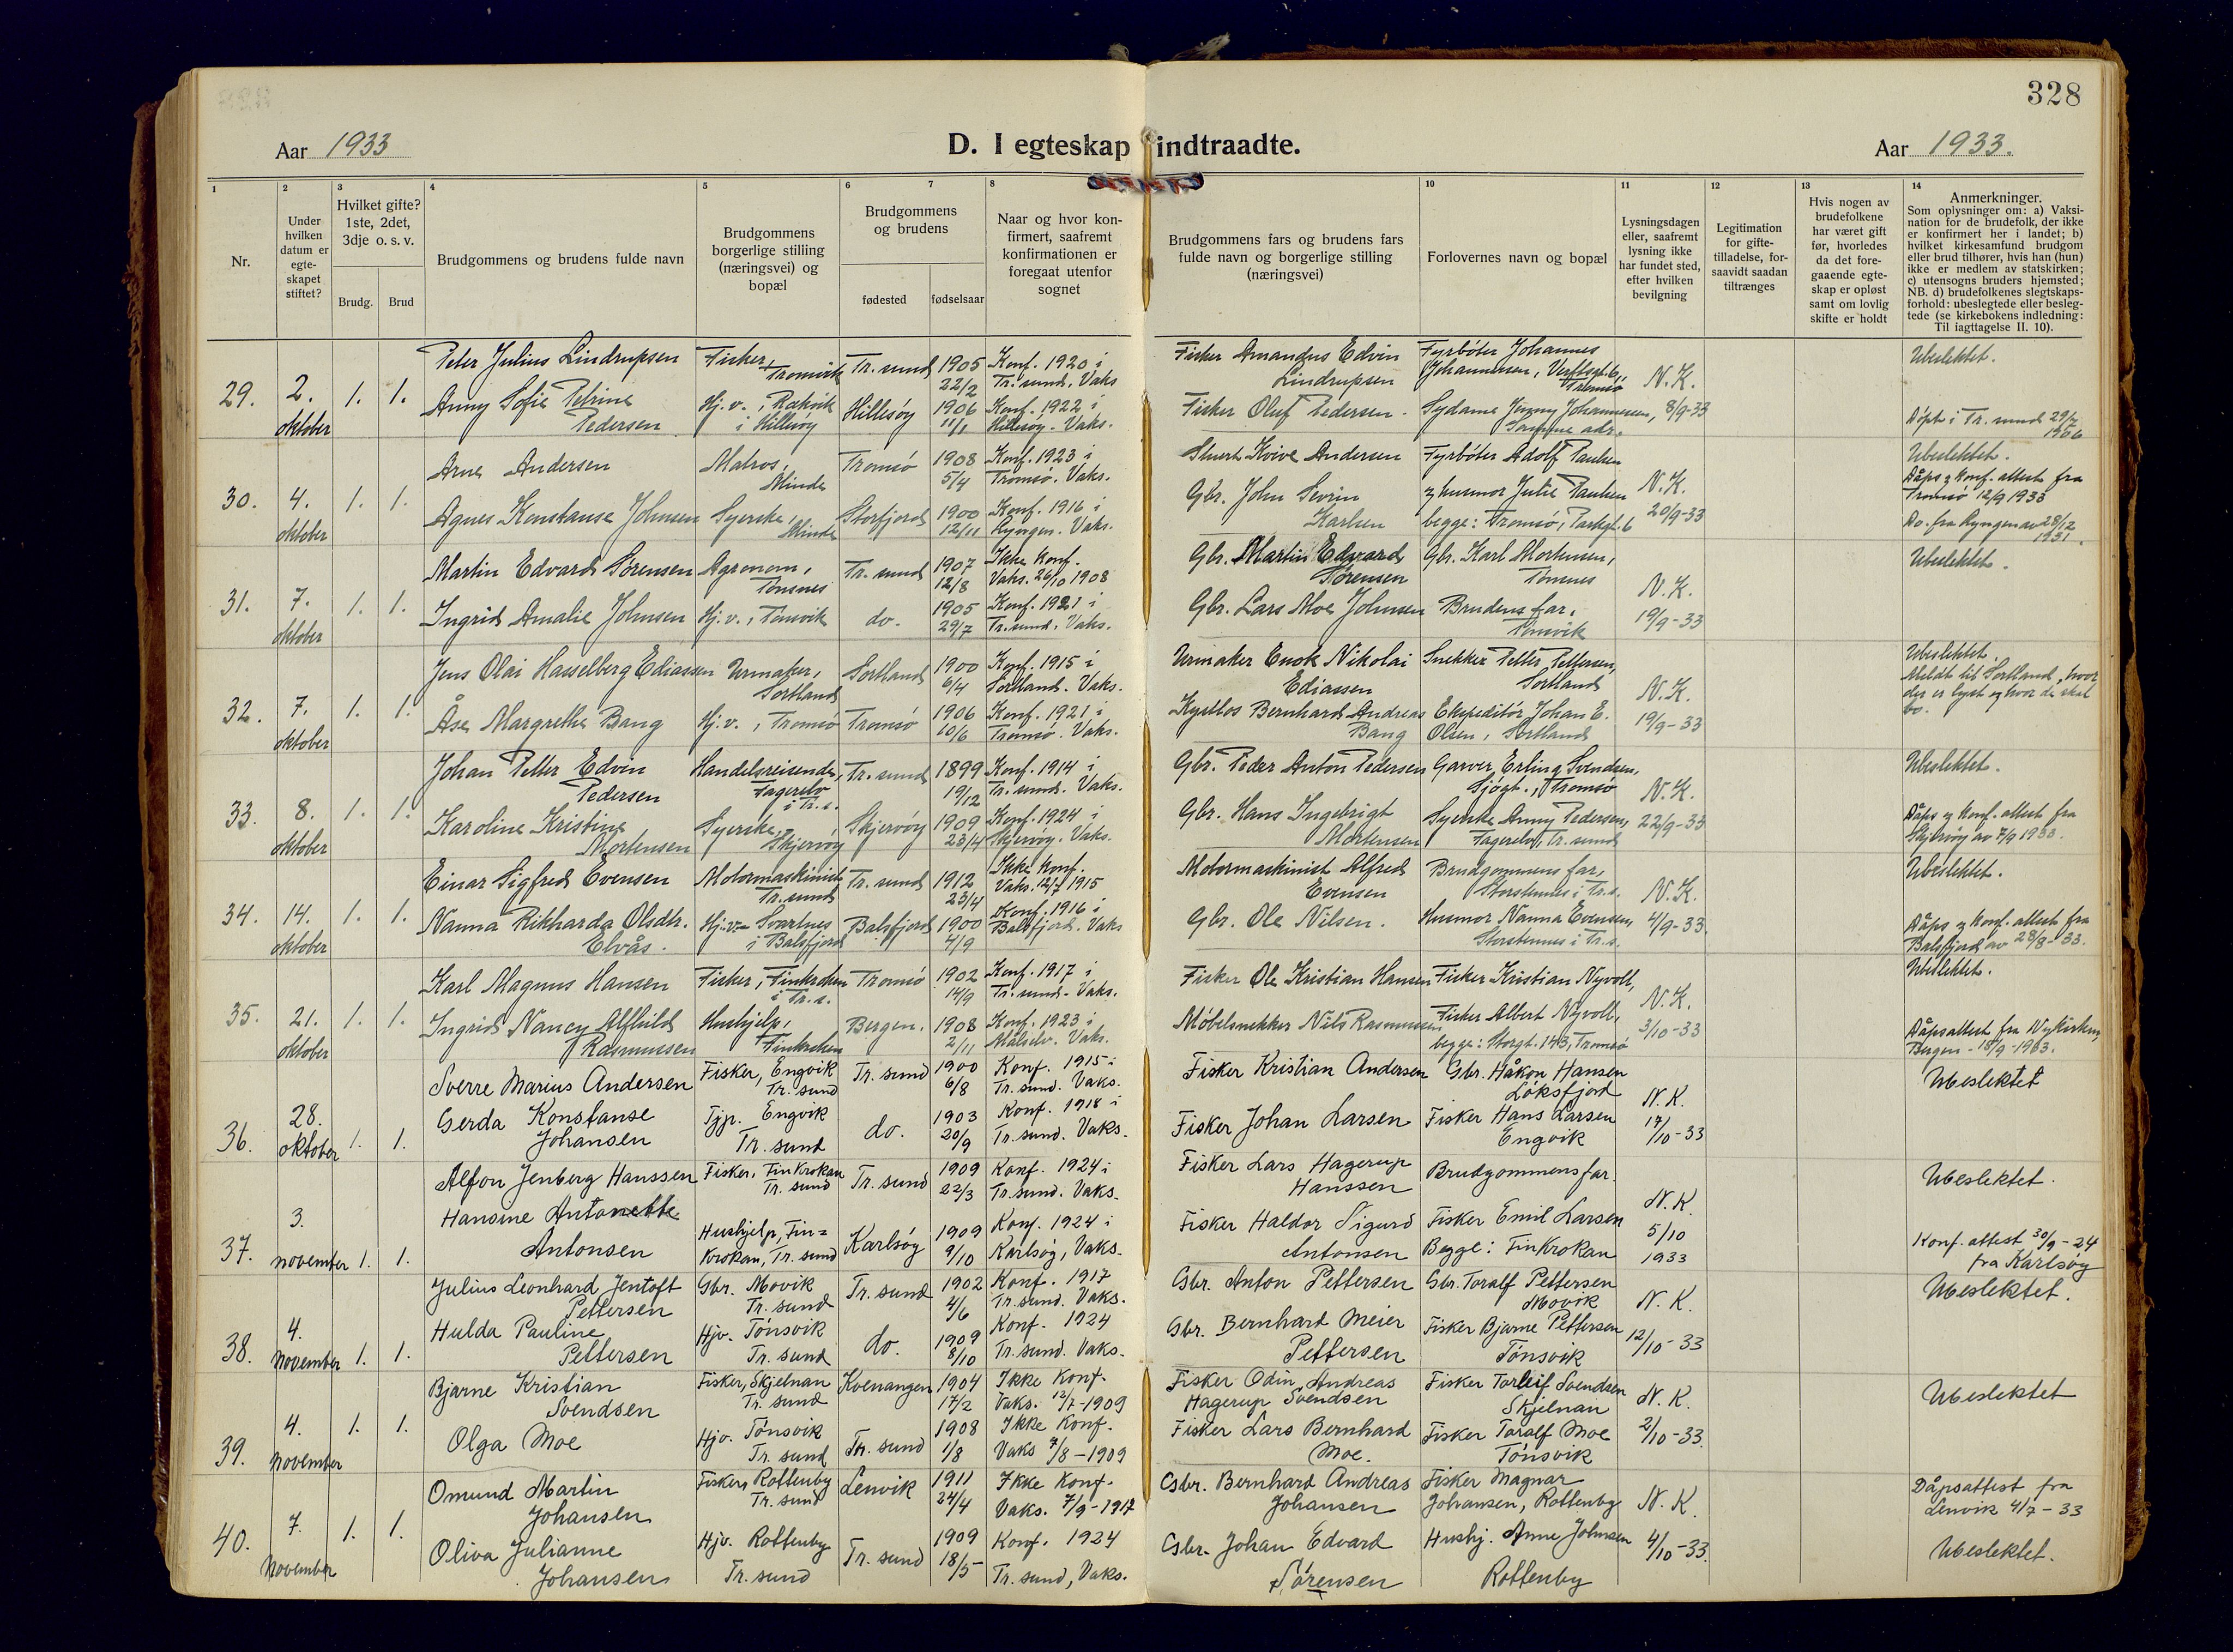 328
Aar 1933
D. I egteskap indtraadte.
Aar 1933.
1 2 3 4 5 6 7 8 9 10 11 12 13 14
Nr.
Under hvilken datum er egte-skapet stiftet?
Hvilket gifte? 1ste, 2det, 3dje o. s. v.
Brudg. Brud
Brudgommens og brudens fulde navn
Brudgommens borgerlige stilling (næringsvei) og bopæl
Brudgommens og brudens
fødested fødselsaar
Naar og hvor kon-firmert, saafremt konfirmationen er foregaat utenfor sognet
Brudgommens fars og brudens fars fulde navn og borgerlige stilling (næringsvei)
Forlovernes navn og bopæl
Lysningsdagen eller, saafremt lysning ikke har fundet sted, efter hvilken bevilgning
Legitimation for gifte-tilladelse, for-saavidt saadan tiltrænges
Hvis nogen av brudefolkene har været gift før, hvorledes da det fore-gaaende egte-skap er opløst samt om lovlig skifte er holdt
Anmerkninger.
Som oplysninger om: a) Vaksi-nation for de brudefolk, der ikke er konfirmert her i landet; b) hvilket kirkesamfund brudgom eller brud tilhører, hvis han (hun) ikke er medlem av statskirken; c) utensogns bruders hjemsted; NB. d) brudefolkenes slegtskaps-forhold: ubeslegtede eller besleg-tede (se kirkebokens indledning: Til iagttagelse II. 10).
29. 2. oktober 1. 1.
Peter Julius Lindrupsen Fisker, Tromvik Tr. sund 1905 22/2 Konf. 1920 i Tr. sund. Vaks
Fisker Amandus Edvin Lindrupsen Fyrbøter Johannes Johannesen, Verftsgt. 6, Tromsø N.K. 8/9-33 Ubeslektet.
Anny Sofie Petrine Pedersen Hj.v., Rekvik i Hillesøy Hillesøy 1906 11/1 Konf. 1922 i Hillesøy. Vaks.
Fisker Oluf Pedersen. Sydame Jenny Johannesen, Samme adr. Døpt i Tr. sund 29/7 1906
30. 4. oktober 1. 1.
Arne Andersen Matros, Minde Tromsø 1908 5/4 Konf. 1923 i Tromsø. Vaks.
Stuert Koive Andersen Fyrbøter Adolf Paulsen N.K. 20/9-33 Ubeslektet. Dåps og konf. attest fra Tromsø 12/9 1933
Agnes Konstanse Johnsen Syerske, Minde Storfjord 1900 12/11 Konf. 1916 i Lyngen. Vaks.
Gbr. John Sevrin Karlsen og husmor Julie Paulsen begge: Tromsø, Parkgt. 6 Do. fra Lyngen av 28/12 1931.
31. 7. oktober 1. 1.
Martin Edvard Sørensen Agronom, Tønsnes Tr. sund 1907 12/8 Ikke konf. Vaks. 26/10 1908
Gbr. Martin Edvard Sørensen Gbr. Karl Mortensen, Tønsnes N.K. 19/9-33 Ubeslektet.
Ingrid Amalie Johnsen Hj.v., Tønsvik do. 1905 29/7 Konf. 1921 i Tr. sund. Vaks.
Gbr. Lars Moe Johnsen Brudens far, Tønsvik
32. 7. oktober 1. 1.
Jens Olai Hasselberg Ediassen Urmaker, Sortland Sortland 1900 6/4 Konf. 1915 i Sortland. Vaks.
Urmaker Enok Nikolai Ediassen Snekker Petter Pettersen, Sortland N.K. 19/9-33 Ubeslektet. Meldt til Sortland, hvor der er lyst og hvor de skal bo.
Åse Margrethe Bang Hj.v., Tromsø Tromsø 1906 10/6 Konf. 1921 i Tromsø. Vaks.
Bernhard Andreas Bang Ekspeditør Johan E. Olsen, Sortland
33. 8. oktober 1. 1.
Johan Petter Edvin Pedersen Handelsreisende, Fagerelv i Tr.s. Tr. sund 1899 19/12 Konf. 1914 i Tr. sund. Vaks.
Gbr. Peder Anton Pedersen Garver Erling Svendsen, Sjøgt., Tromsø N.K. 22/9-33 Ubeslektet.
Karoline Kristine Mortensen Syerske, Skjervøy Skjervøy 1909 23/4 Konf. 1924 i Skjervøy. Vaks.
Gbr. Hans Ingebrigt Mortensen Syerske Anny Pedersen, Fagerelv, Tr. sund Dåps og konf. attest fra Skjervøy av 7/9 1933.
34. 14. oktober 1. 1.
Einar Sigfred Evensen Motormaskinist Tr. sund Tr. sund 1912 23/4 Ikke konf. Vaks. 12/7 1915
Motormaskinist Alfred Evensen Brudgommens far, Storstennes i Tr.s. N.K. 4/9-33 Ubeslektet.
Nanna Rikharda Olsdtr. Elvås. Hj.v. Svartnes i Balsfjord Balsfjord 1900 4/9 Konf. 1916 i Balsfjord. Vaks
Gbr. Ole Nilsen. Husmor Nanna Evensen, Storstennes i Tr.s. Dåps og konf. attest fra Balsfjord av 28/8-33.
35. 21. oktober 1. 1.
Karl Magnus Hansen Fisker, Finkroken i Tr.s. Tromsø 1902 14/9 Konf. 1917 i Tr. sund. Vaks.
Fisker Ole Kristian Hansen Fisker Kristian Nyvoll, N.K. 3/10-33 Ubeslektet.
Ingrid Nancy Alfhild Rasmussen Hushjelp, Finkroken Bergen. 1908 2/11 Konf. 1923 i Målselv. Vaks.
Møbelsnekker Nils Rasmussen Fisker Albert Nyvoll, begge: Storgt. 143, Tromsø Dåpsattest fra Nykirken, Bergen - 18/9-1933.
36. 28. oktober 1. 1.
Sverre Marius Andersen Fisker, Engvik Tr. sund Tr. sund 1900 6/8 Konf. 1915 i Tr. sund. Vaks.
Fisker Kristian Andersen Gbr. Håkon Hansen Løksfjord N.K. 17/10-33 Ubeslektet
Gerda Konstanse Johansen Tjp. Engvik Tr. sund do. 1903 20/9 Konf. 1918 i Tr. sund. Vaks.
Fisker Johan Larsen Fisker Hans Larsen Engvik
37. 3. november 1. 1.
Alfon Jenberg Hanssen Fisker, Finkrokan Tr. sund Tr. sund 1909 22/3 Konf. 1924 i Tr. sund. Vaks.
Fisker Lars Hagerup Hanssen Brudgommens far. N.K. 5/10 1933 Ubeslektet.
Hansine Antonette Antonsen Hushjelp, Fin=krokan, Tr. sund Karlsøy 1909 9/10 Konf. 1924 i Karlsøy, Vaks.
Fisker Haldor Sigurd Antonsen Fisker Emil Larsen Begge: Finkrokan Konf. attest 30/9-24 fra Karlsøy
38. 4. november 1. 1.
Julius Leonhard Jentoft Pettersen Gbr. Movik Tr. sund Tr. sund 1902 4/6 Konf. 1917 Tr. sund. Vaks.
Gbr. Anton Pettersen Gbr. Toralf Pettersen Movik N.K. 12/10-33 Ubeslektet.
Hulda Pauline Pettersen Hjv. Tönsvik Tr. sund do. 1909 8/10 Konf. 1924 Tr. sund. Vaks.
Gbr. Bernhard Meier Pettersen Fisker Bjarne Pettersen Tönsvik
39. 4. november 1. 1.
Bjarne Kristian Svendsen Fisker, Skjelnan Tr. sund Kvenangen 1904 17/2 Ikke konf. Vaks. 12/7-1909
Fisker Odin Andreas Hagerup Svendsen Fisker Torleif Svendsen Skjelnan N.K. 2/10-33. Ubeslektet
Olga Moe Hjv. Tönsvik Tr. sund Tr. sund 1908 1/8 Ikke konf. Vaks 7/8-1909
Fisker Lars Bernhard Moe. Fisker Toralf Moe Tönsvik
40. 7. november 1. 1.
Omund Martin Johansen Fisker, Rottenby Tr. sund Lenvik 1911 24/4 Ikke konf. Vaks. 7/9-1912
Gbr. Bernhard Andreas Johansen Fisker Magnar Johansen, Rottenby N.K. 4/10-33. Dåpsattest fra Lenvik 4/7-33
Oliva Julianne Johansen Hjv. Rottenby Tr. sund Tr. sund 1909 18/5 Konf. 1924 Tr. sund, Vaks.
Gbr. Johan Edvard Sörensen Hushj. Anne Johnsen Rottenby Ubeslektet.